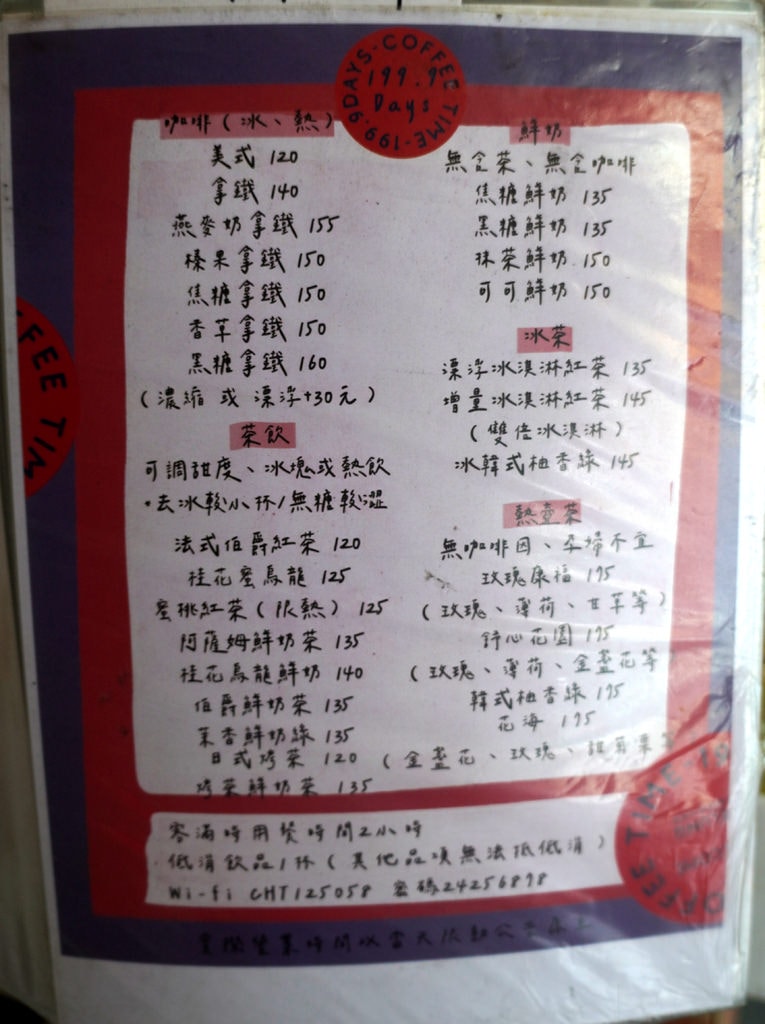 199.9DAYS·COFFEE TIME·
199.9
Days
咖啡(冰、熱)
美式 120
拿鐵 140
燕麥奶拿鐵 155
榛果拿鐵 150
焦糖拿鐵 150
香草拿鐵 150
黑糖拿鐵 160
(濃縮 或 漂浮+30元)
茶飲
可調甜度、冰塊或熱飲
·去冰較小杯/無糖較澀
法式伯爵紅茶 120
桂花蜜烏龍 125
蜜桃紅茶(限熱) 125
阿薩姆鮮奶茶 135
桂花烏龍鮮奶 140
伯爵鮮奶茶 135
茉香鮮奶綠 135
日式烤茶 120
烤茶鮮奶茶 135
鮮奶
無含茶、無含咖啡
焦糖鮮奶 135
黑糖鮮奶 135
抹茶鮮奶 150
可可鮮奶 150
冰茶
漂浮冰淇淋紅茶 135
增量冰淇淋紅茶 145
(雙倍冰淇淋)
冰韓式柚香綠 145
熱壺茶
無咖啡因、孕婦不宜
玫瑰康福 195
(玫瑰、薄荷、甘草等)
舒心花園 195
(玫瑰、薄荷、金盞花等)
韓式柚香綠 195
花海 195
(金盞花、玫瑰、甜菊葉等
客滿時用餐時間2小時
低消飲品1杯(其他品項無法抵低消)
Wi-fi CHT125058 密碼24256898
實際營業時間以當天限動公告為主
FFEE TIM
OFFEE TIME·19